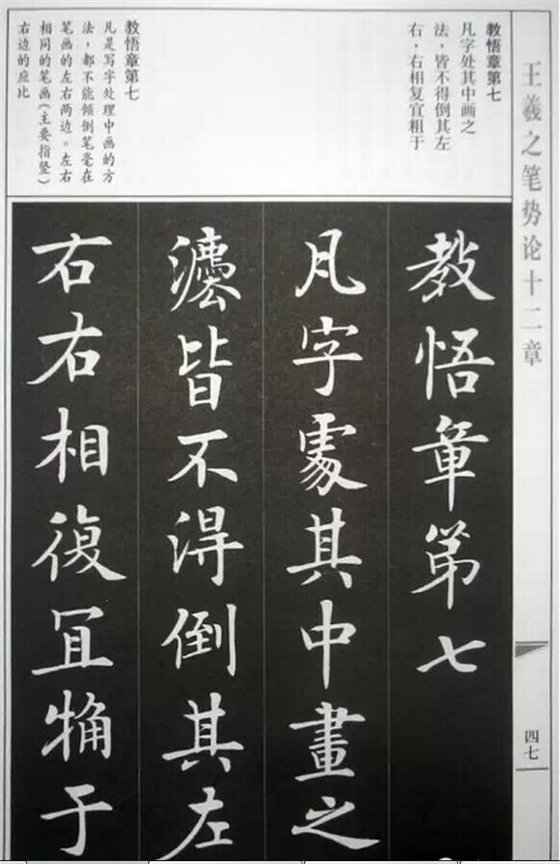 王羲之笔势论十二章
四七
教悟章第七
凡字处其中画之
法,皆不得倒其左
右,右相复宜粗于
教悟章第七
凡是写字处理中画的方
法,都不能倾倒笔毫在
笔画的左右两边。左右
相同的笔画(主要指竖)
右边的应比
教悟章第七
凡字處其中畫之
灋皆不得倒其左
右右相復冝觕于